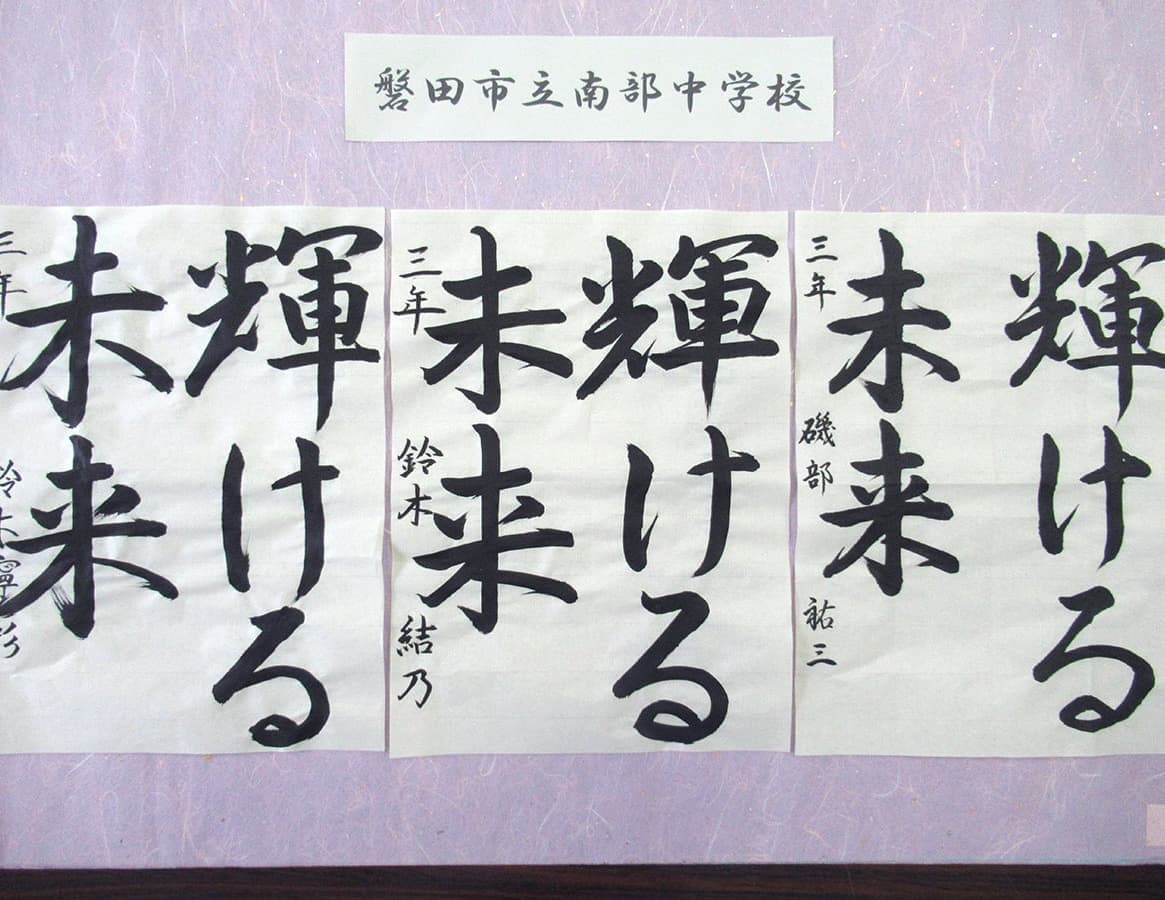 磐田市立南部中学校
輝ける
未来
三年 磯部 祐三
輝ける
未来
三年 鈴木 結乃
輝ける
未来
三年 鈴木